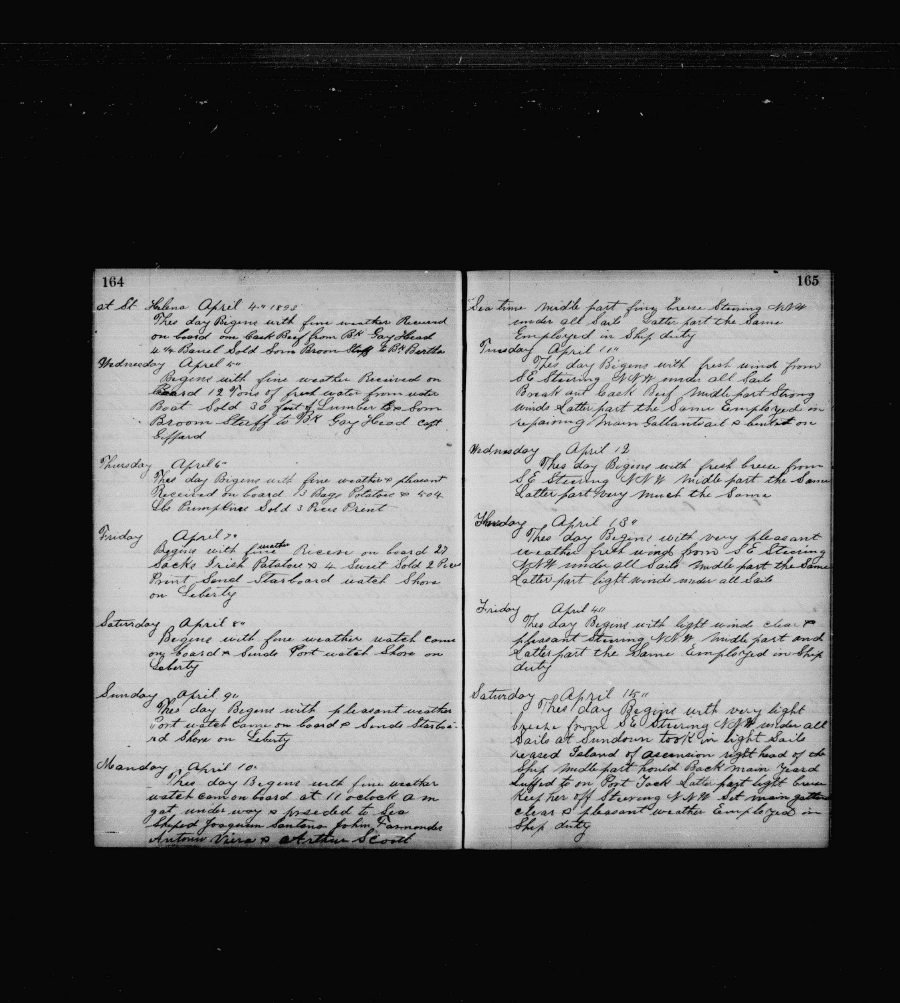 164
at St Helena April 4" 1893
This day Bigins with fine weather Received
on board one Cask Beef from Bk Gay Head
4 1/4 Barrel Sold Som Broom Stuff to Bk Bertha
Wednesday April 5"
Begins with fine weather Received on
Board 12 Tons of fresh water from water
Boat Sold 30 feet of Lumber & Som
Broom Stuff to Bk Gay Head Capt
Giffard
Thursday April 6"
This day Bigins with fine weather & pleasant
Received on board 13 Bags Potatoes & 404
Lbs Pumpkins Sold 3 Peces Print
Friday April 7"
weather
Begins with fine Riceve on board 27
Sacks Irish Potatoes & 4 Sweet Sold 2 Peces
Print Send Starboard watch Shore
on Leberty
Saturday April 8"
Begins with fine weather watch come
on board & Sende Port watch Shore on
Leberty
Sunday April 9"
This day Begins with pleasant weather
Port watch Came on board & Sende Starboa-
rd Shore on Leberty
Manday April 10"
This day Begins with fine weather
watch com on board at 11 oclock A m
gat under way & proseded to Sea
Shiped Joaquim Santana John Farnander
Antonio Viera & Arthur Scoott
165
Sea time Midle part fine breese Stering NNW
under all Sails Latter part the Same
Employed in Ship duty
Tuesday April 11"
This day Bigins with fresh wind from
SE Steering NNW under all Sails
Break out Cask Beef Midle part Strong
winds Latter part the Same Employed in
repairing Main Gallantsail & bent it on
Wednesday April 12
This day Bigins with fresh breese from
SE Steering NNW Midle part the Same
Latter part Very Much the Same
Thursday April 13"
This day Begins with very pleasant
weather fresh wind from SE Steering
NNW under all Sails Midle part the Same
Latter part light winds under all Sails
Friday April 4"
This day Begins with light winds clear &
pleasant Stering NNW Midle part and
Latter part the Same Employed in Ship
duty
Saturday April 15"
This day Begins with very light
breese from SE Stering NNW under all
Sails at Sundown took in light Sails
reased Island of Ascension right head of the
Ship Midle part hould Back Main Yeard
luffed to on Port Tack Latter part light breese
Keep her off Steering NNW Set main
clear & pleasant weather Employed in
Ship duty